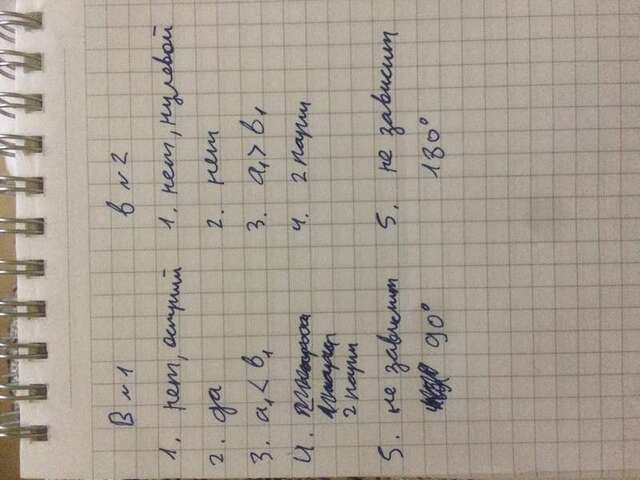 В №1
1. нет, острый
2. да
3. a₁ < b₁
4.
2 пары
5. не зависит
90°
В №2
1. нет, нулевой
2. нет
3. a₁ > b₁
4. 2 пары
5. не зависит
180°